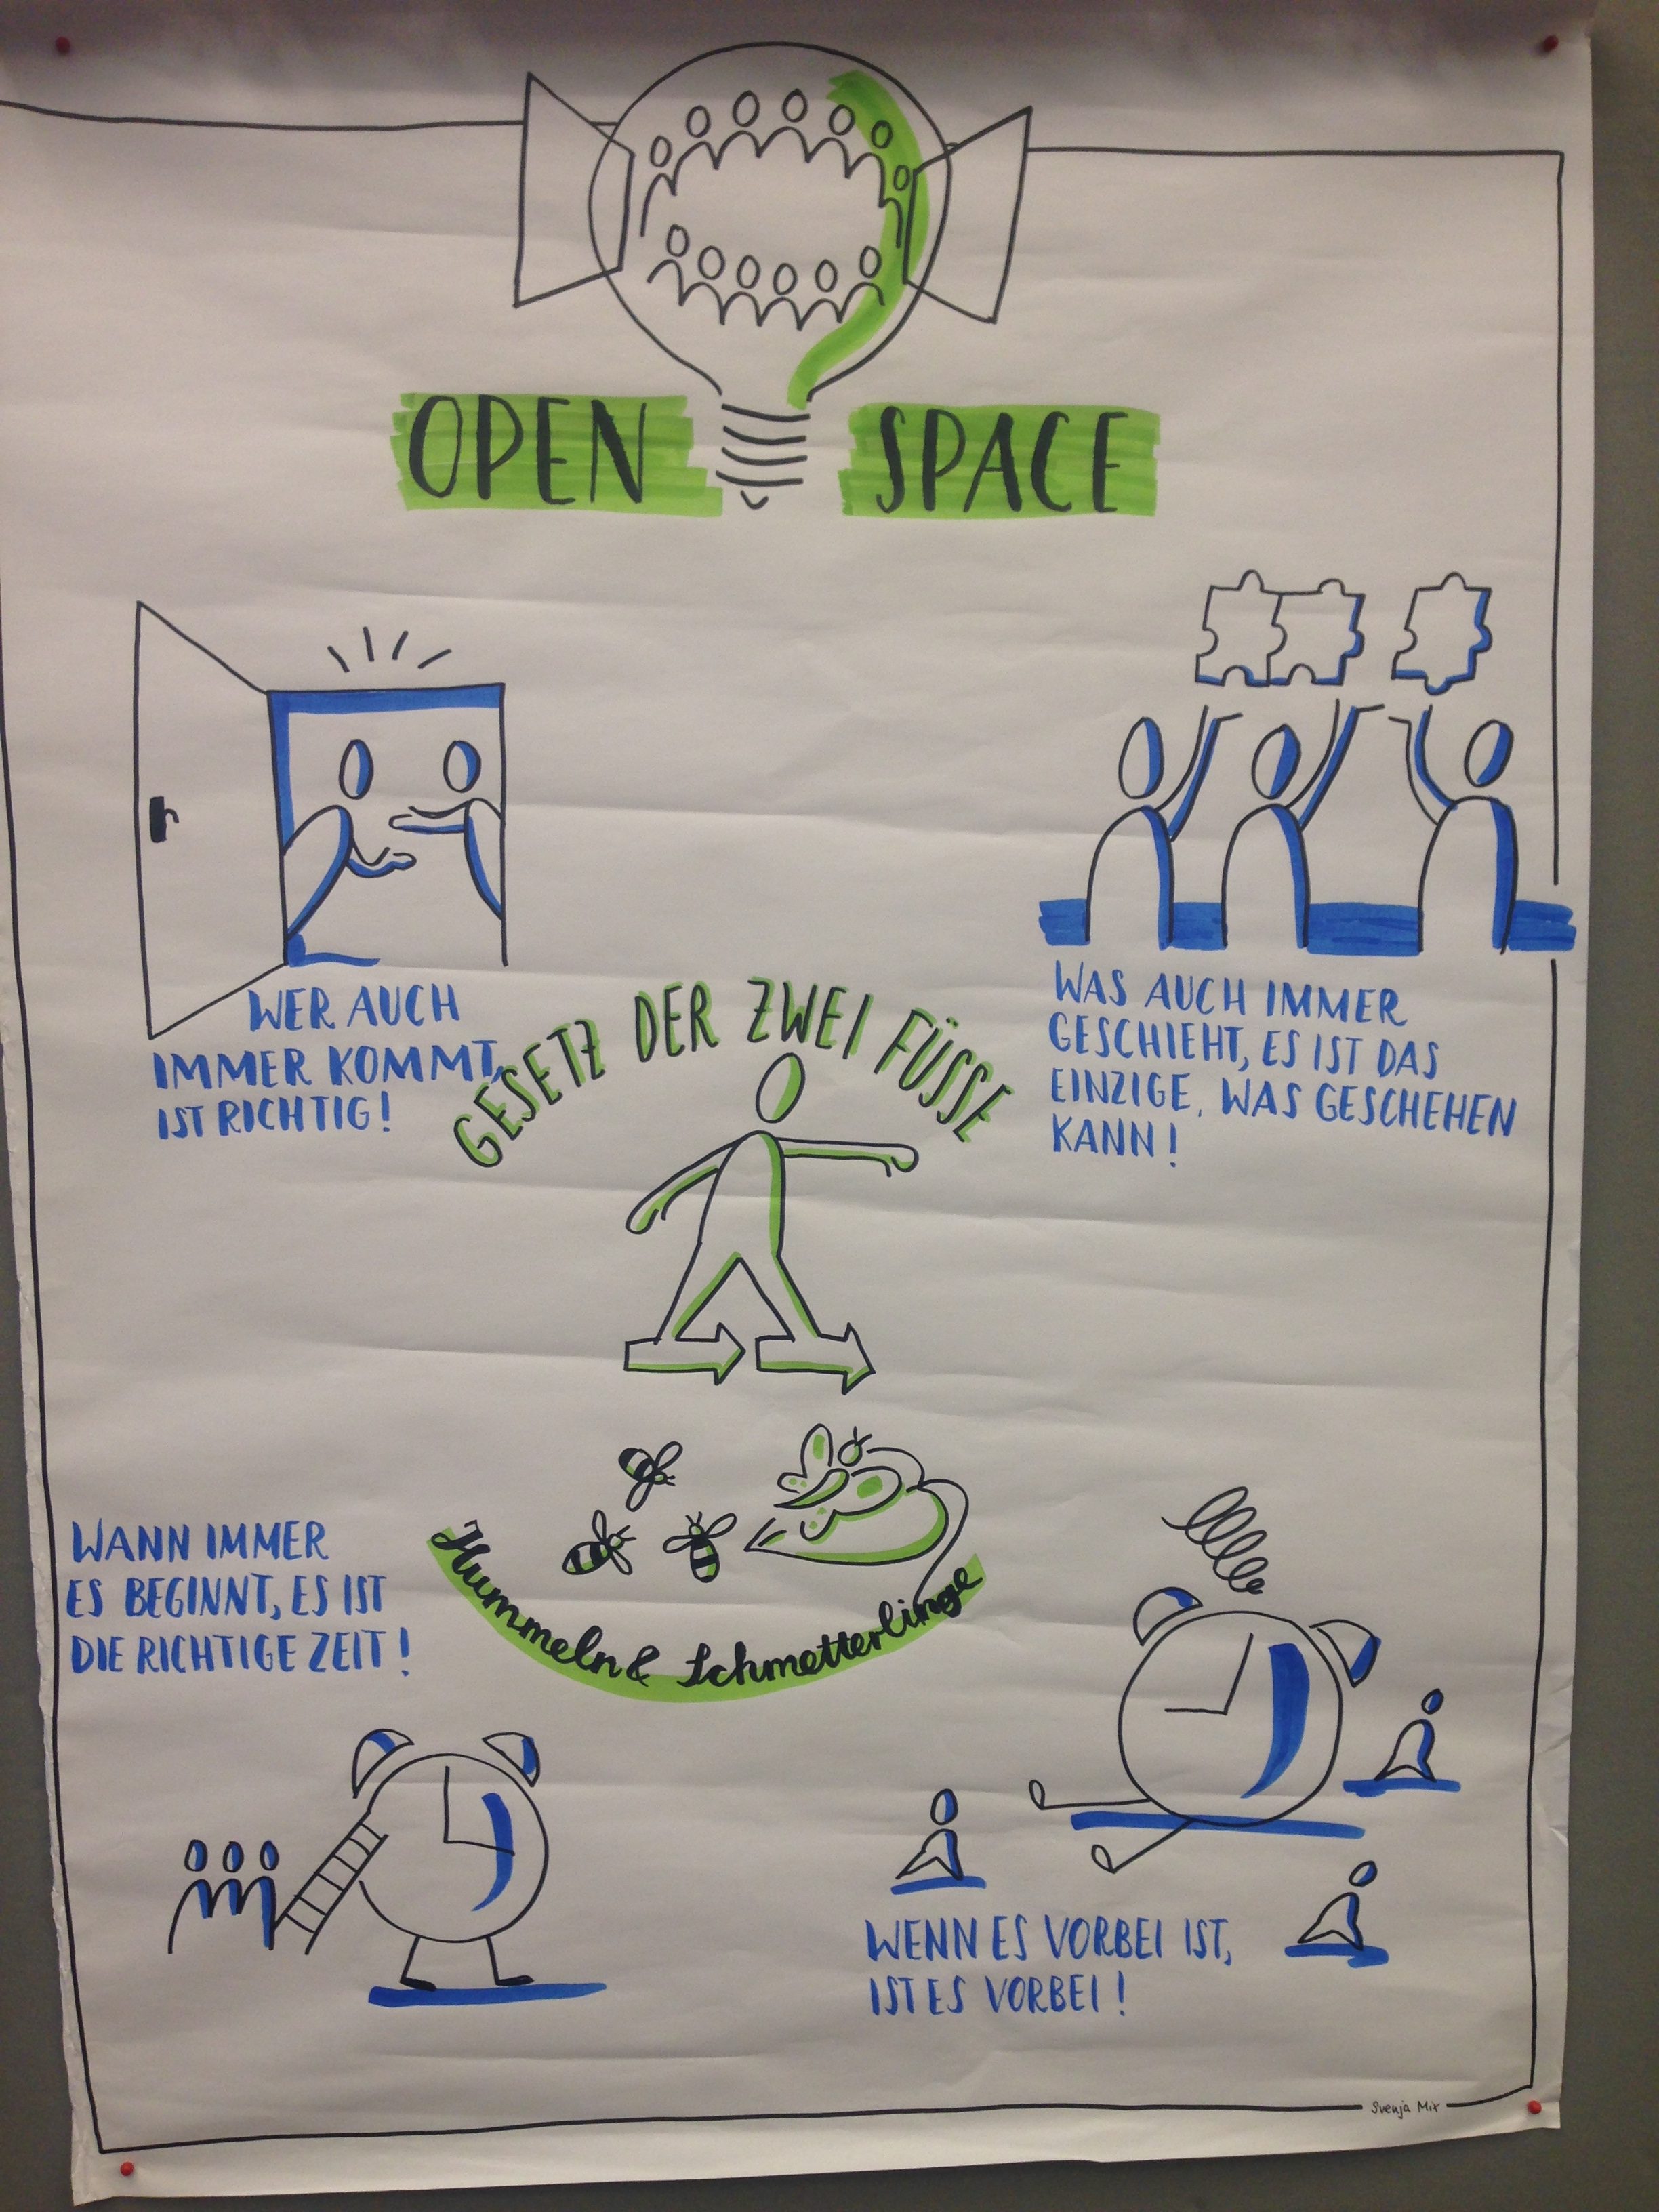 OPEN SPACE
WER AUCH
IMMER KOMMT,
IST RICHTIG!
WAS AUCH IMMER
GESCHIEHT, ES IST DAS
EINZIGE, WAS GESCHEHEN
KANN!
GESETZ DER ZWEI FÜSSE
Hummeln & Schmetterlinge
WANN IMMER
ES BEGINNT, ES IST
DIE RICHTIGE ZEIT!
WENN ES VORBEI IST,
IST ES VORBEI!
Svenja Mix